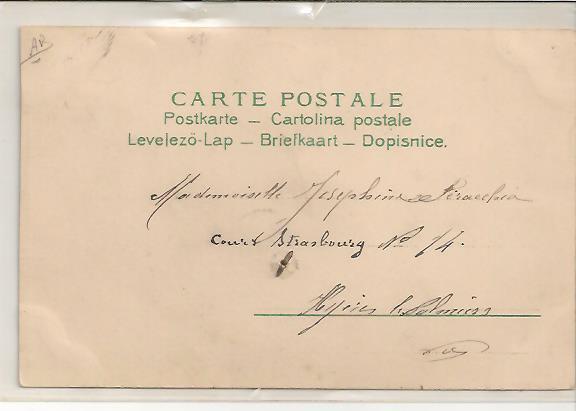 AR
CARTE POSTALE
Postkarte — Cartolina postale
Levelező-Lap — Briefkaart — Dopisnice.
Mademoiselle Josephine Peracchia
Cours Strasbourg No 14.
Hyères les Palmiers